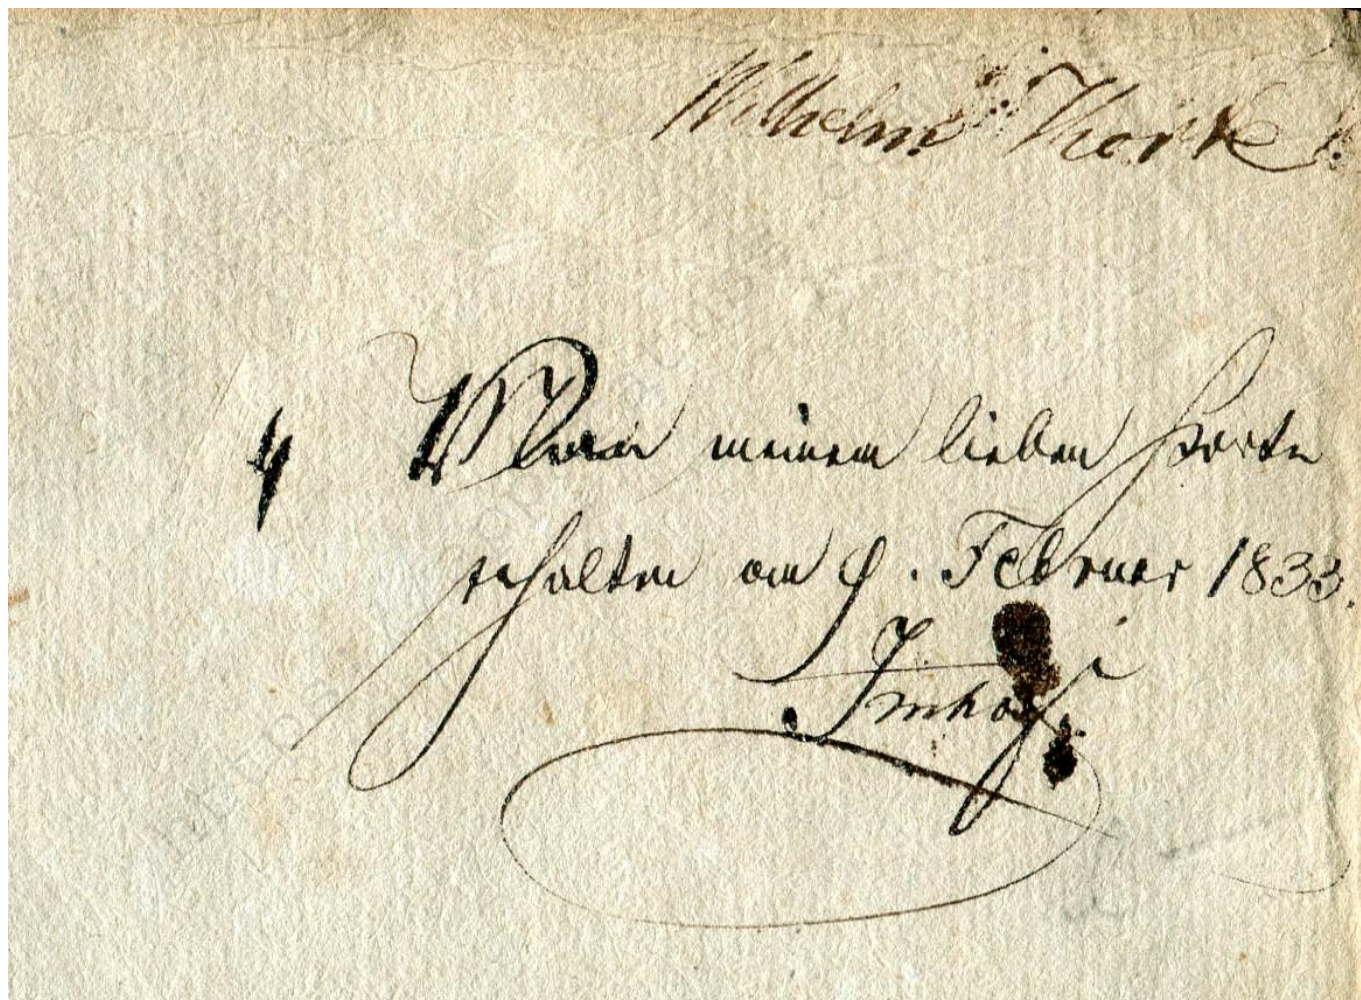 Wilhelm Thorte
4 Von meinem lieben Horte
erhalten am 9. Februar 1833.
Imhof